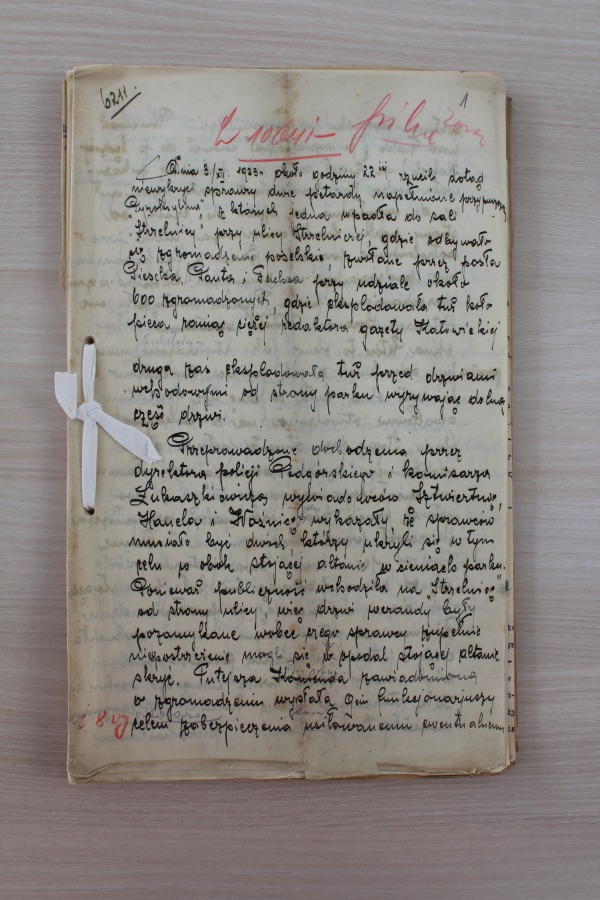 6211.
1
Dnia 3/XI. 1923r około godziny 22ij rzucili dotąd
niewykryci sprawcy dwie petardy napełnione przypuszcz.
z których jedna wpadła do sali
"Strzelnicy" przy ulicy Strzelniczej gdzie odbywało
się zgromadzenie poselskie, zwołane przez posła
i Fuchsa przy udziale około
600 zgromadzonych, gdzie eksplodowała tuż koło
pieca raniąc ciężej redaktora gazety Katowickiej
druga zaś eksplodowała tuż przed drzwiami
wchodowymi od strony parku wyrywając dolną
część drzwi.
Przeprowadzone dochodzenia przez
dyrektora policji Podgórskiego i komisarza
Łukaszkiewicza wywiadowców Sztwiertnię,
Hanela i Woźnicę wykazały że sprawców
musiało być dwóch którzy ukryli się w tym
celu po obok stojącej altanie w cieniach parku.
Ponieważ publiczność wchodziła na "Strzelnicę"
od strony ulicy, więc drzwi werandy były
pozamykane wobec czego sprawcy zupełnie
niepostrzeżenie mogli się w opodal stojącej altanie
skryć. Tutejsza Komenda zawiadomiona
o zgromadzeniu wysłała funkcjonarjuszy
celem zabezpieczenia usiłowaniom ewentualnem